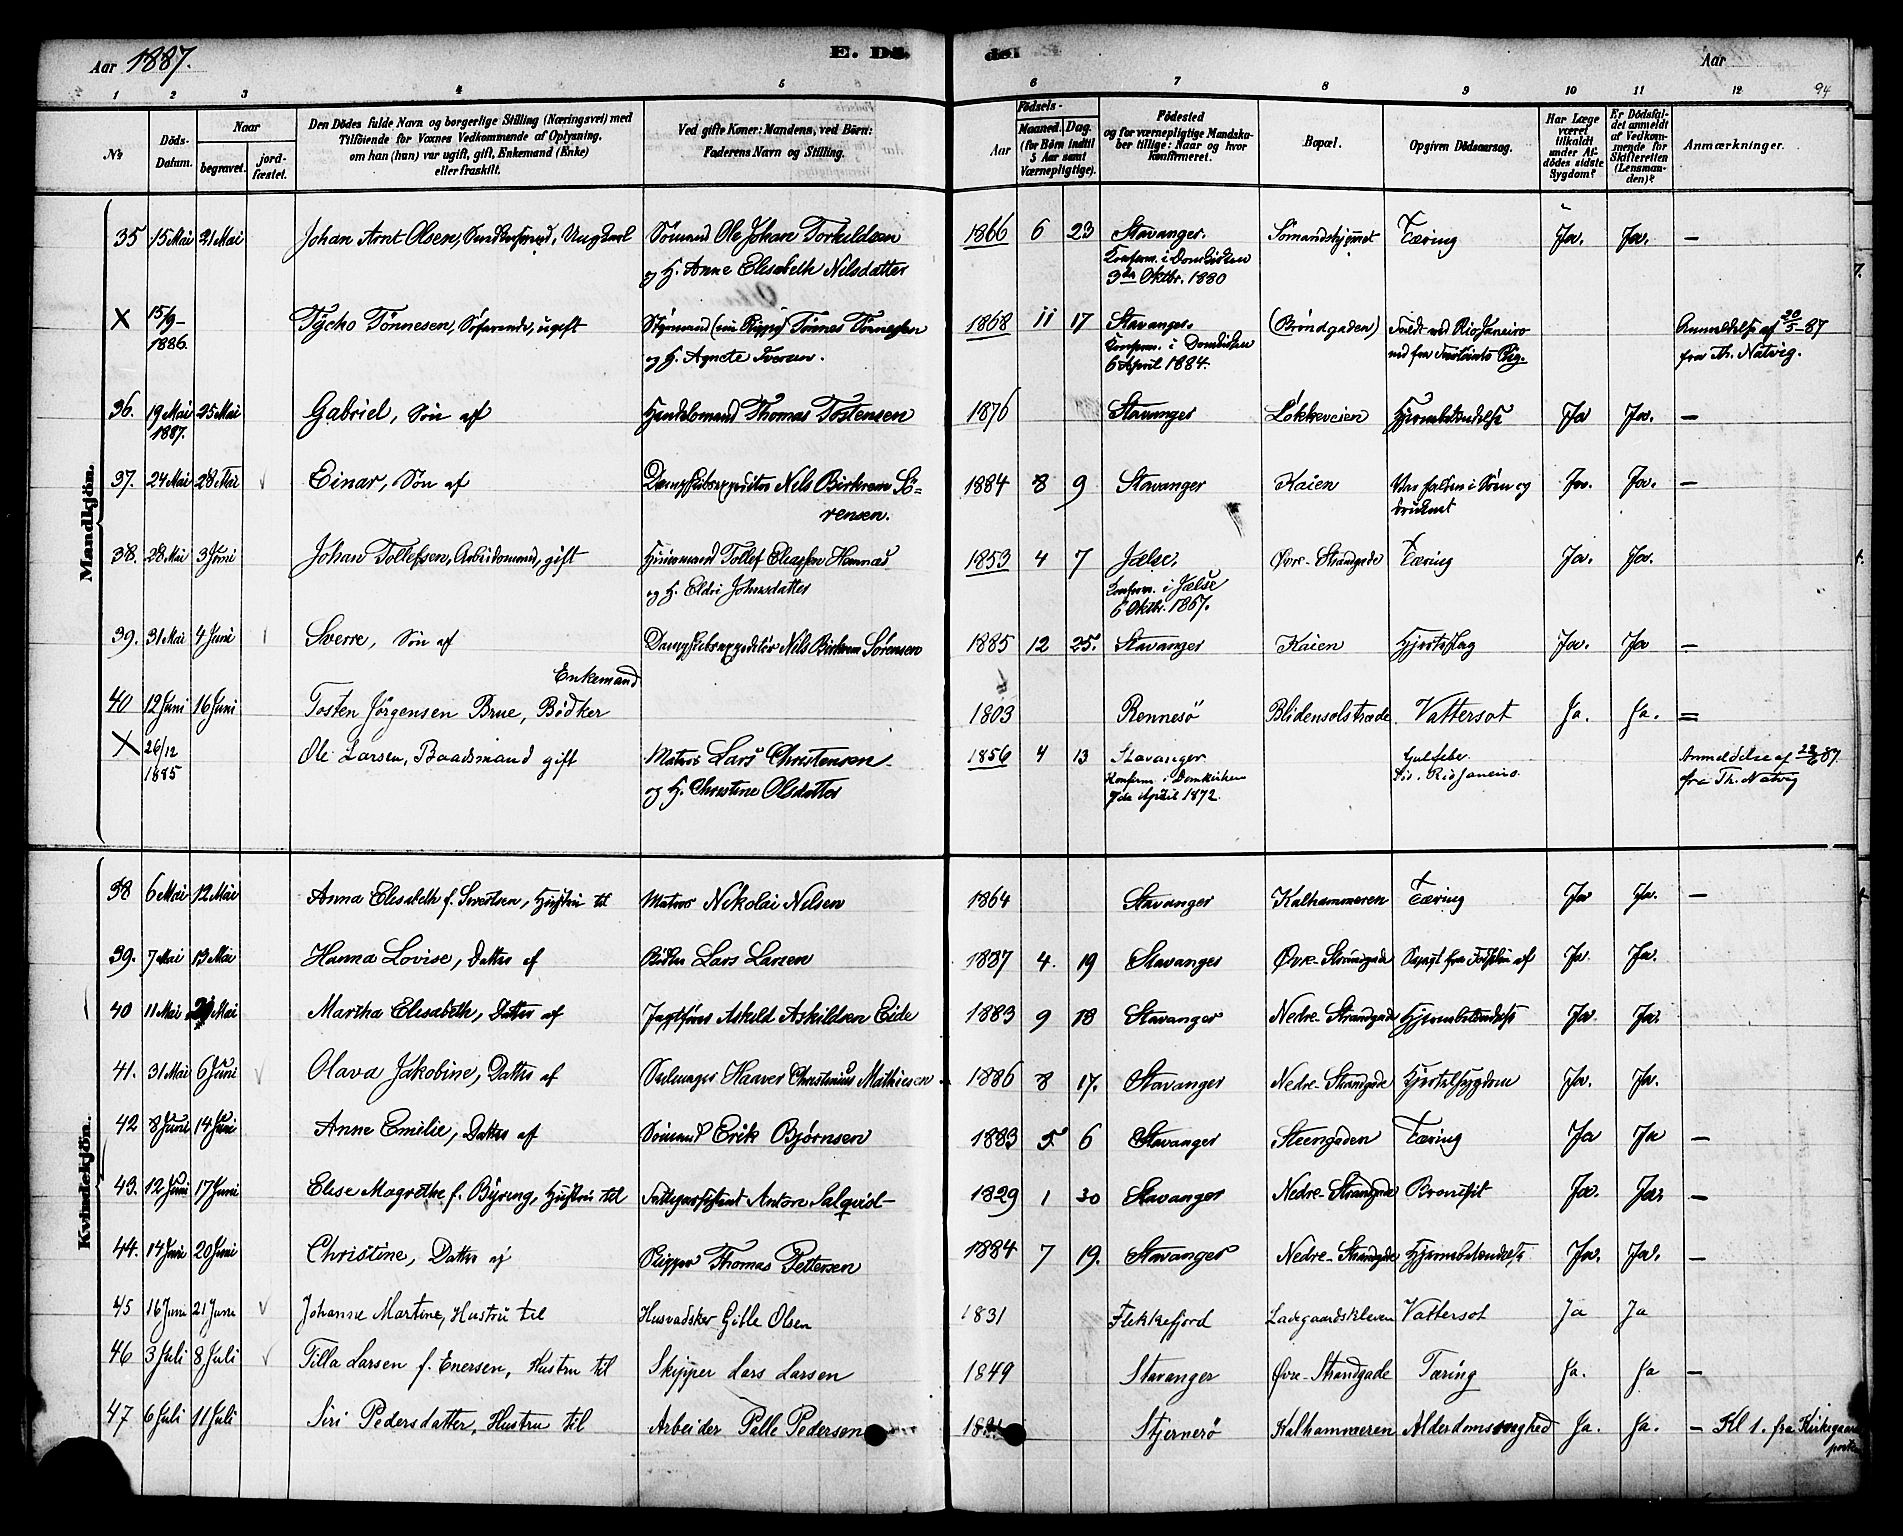 Aar 1887.
E. Dö. de.
Aar
94
1 2 3 4 5 6 7 8 9 10 11 12
No
Döds-Datum.
Naar
begravet.
jord-fæstet.
Den Dödes fulde Navn og borgerlige Stilling (Næringsvei) med
Tilföiende for Voxnes Vedkommende af Oplysning,
om han (hun) var ugift, gift, Enkemand (Enke)
eller fraskilt.
Ved gifte Koner: Mandens, ved Börn:
Faderens Navn og Stilling.
Födsels-
Aar
Maaned. Dag.
(for Börn indtil
5 Aar samt
Værnepligtige).
Födested
og for værnepligtige Mandska-
ber tillige: Naar og hvor
konfirmeret.
Bopæl.
Opgiven Dödsaarsag.
Har Læge
været
tilkaldt
under Af-
dödes sidste
Sygdom?
Er Dödsfal-
det anmeldt
af Vedkom-
mende for
Skifteretten
(Lensman-
den)?
Anmærkninger.
Mandkjön.
35 15 Mai 21 Mai Johan Arnt Olsen, Ungkarl Sömand Ole Johan Torkildsen 1866 6 23 Stavanger. Sömandshjemmet Tæring Ja. Ja. —
og H. Anne Elisabeth Nilsdatter Konfirm. i Domkirken
3die Oktbr. 1880
X 15/9- 1886. Tycho Tönnesen, Söfarende, ugift Styrmand Tönnes Tönnessen 1868 11 17 Stavanger. (Bröndgaden) Faldt ved Rio Janeiro Anmeldelse af 20/5-87
og H. Agnete Iversen. Konfirm. i Domkirken ned fra fra Th. Natvig.
6 April 1884.
36. 19 Mai 1887. 25 Mai Gabriel, Sön af Handelsmand Thomas Tostensen 1876 Stavanger Lökkeveien Hjernebetændelse Ja Ja. —
37. 24 Mai 28 Mai Einar, Sön af Dampskibsexpeditör Nils Birkrem Sö- 1884 8 9 Stavanger Kaien falden i Söen og Ja. Ja. —
rensen. druknet
38. 28 Mai 3 Juni Johan Tollefsen, Arbeidsmand, gift Huusmand Tollef Eliassen 1853 4 7 Jælse, Övre-Strandgade Tæring Ja. Ja.
og H. Eldri Johnsdatter Konfirm. i Jælse
6 Oktbr. 1867.
39. 31 Mai 4 Juni Sverre, Sön af Dampskibsexpeditör Nils Birkrem Sörensen 1885 12 25. Stavanger Kaien Hjerteslag Ja. Ja —
Enkemand
40 12 Juni 16 Juni Tosten Jörgensen Brue, Bödker 1803 Rennesö Blidensolstræde Vattersot Ja. Ja. =
X 26/12 1885 Ole Larsen, Baadsmand gift Matros Lars Christensen 1856 4 13 Stavanger Gulfeber Anmeldelse af 87.
og H. Christine Olsdatter Konfirm. i Domkirken Rio Janeiro. fra Th. Natvig
7de April 1872.
Kvindekjön.
38 6 Mai 12 Mai Anna Elisabeth f. Sivertsen, Hustru til Matros Nikolai Nilsen 1864 Stavanger Kalhammeren Tæring Ja Ja. —
39. 7 Mai 13 Mai Hanna Lovise, Datter af Bödker Lars Larsen 1887 4. 19 Stavanger Övre-Strandgade Svagt fra Födselen af Ja. Ja.
40 11 Mai Mai Martha Elisabeth, Datter af Jagtförer Askild Askildsen Eide 1883 9 18 Stavanger Nedre-Strandgade Hjernebetændelse Ja. Ja.
41. 31 Mai 6 Juni Olava Jakobine, Datter af Seilmager Haaver Christinius Mathiesen 1886 8 17. Stavanger Nedre-Strandgade Hjertesygdom Ja. Ja.
42 8 Juni 14 Juni Anne Emilie, Datter af Sömand Erik Björnsen 1883 5. 6 Stavanger Steengaden Tæring Ja Ja —
43. 12 Juni 17 Juni Elise Magrethe f. Byring, Hustru til Andore Salqvist 1829 1 30 Stavanger Nedre-Strandgade Bronchit Ja. Ja. —
44. 14 Juni 20 Juni Christine, Datter af Skipper Thomas Pettersen 1884 7 19. Stavanger Nedre-Strandgade Hjernebetændelse Ja. Ja. —
45 16 Juni 21 Juni Johanne Martine, Hustru til Husvadsker Gitle Olsen 1831 Flekkefjord Ladegaardskleven Vattersot Ja Ja
46 3 Juli 8 Juli Tilla Larsen f. Enersen, Hustru til Skipper Lars Larsen 1849 Stavanger Övre-Strandgade Tæring Ja. Ja —
47 6 Juli 11 Juli Siri Pedersdatter, Hustru til Arbeider Palle Pedersen Stjernerö Kalhammeren Alderdomssvaghed Ja. Ja. — Kl 1. fra